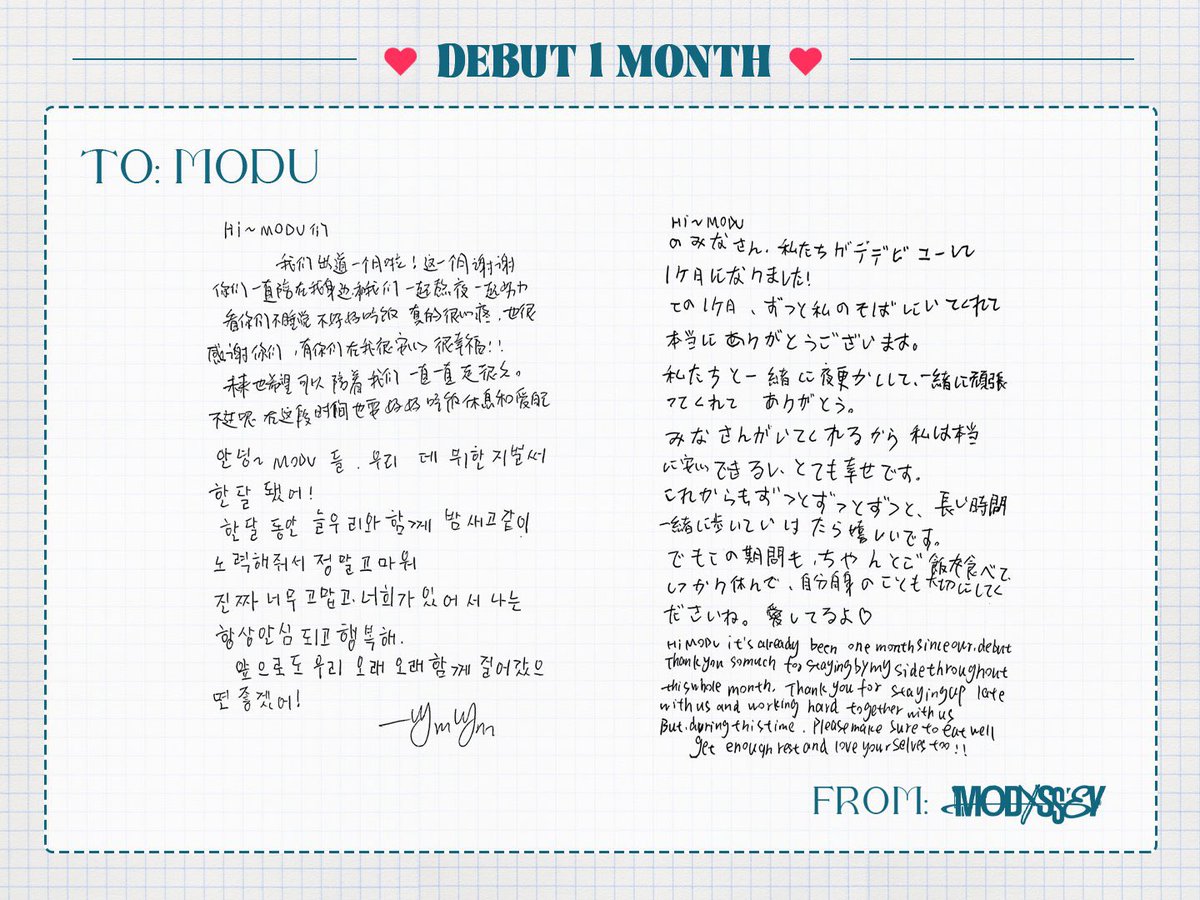 DEBUT 1 MONTH
TO: MODU
Hi~MODU们
我们出道一个月啦！这一个月谢谢
你们一直陪在我身边和我们一起熬夜一起努力
看你们不睡觉 不好好吃饭 真的很心疼，也很
感谢你们，有你们在我很安心 很幸福！！
未来也希望可以陪着我们一直一直走很久。
不过呢 在这段时间也要好好吃饭休息和爱自己
안녕~ MODU 들. 우리 데 뷔한지벌써
한 달 됐어!
한달 동안 늘우리와 함께 밤 새고같이
노력해줘서 정말고마워
진짜 너무 고맙고.너희가 있어서 나는
항상안심 되고 행복해.
앞으로도 우리 오래 오래함께 걸어갔으
면 좋겠어!
Hi~MODU
のみなさん、私たちがデデビューして
1ヶ月になりました!
この1ヶ月、ずっと私のそばにいてくれて
本当にありがとうございます。
私たちと一緒に夜更かしして、一緒に頑張
ってくれて ありがとう。
みなさんがいてくれるから私は本当
に安心できるし、とても幸せです。
これからもずっとずっとずっと、長い時間
一緒に歩いていけたら嬉しいです。
でもこの期間も、ちゃんとご飯を食べて、
しっかり休んで、自分自身のことも大切にしてく
ださいね。愛してるよ♡
Hi MODU it's already been one month since our debut
Thank you so much for staying by my side throughout
this whole month. Thank you for staying up late
with us and working hard together with us
But. during this time. Please make sure to eat well
get enough rest and love yourselves too!!
FROM: MODYSSEY